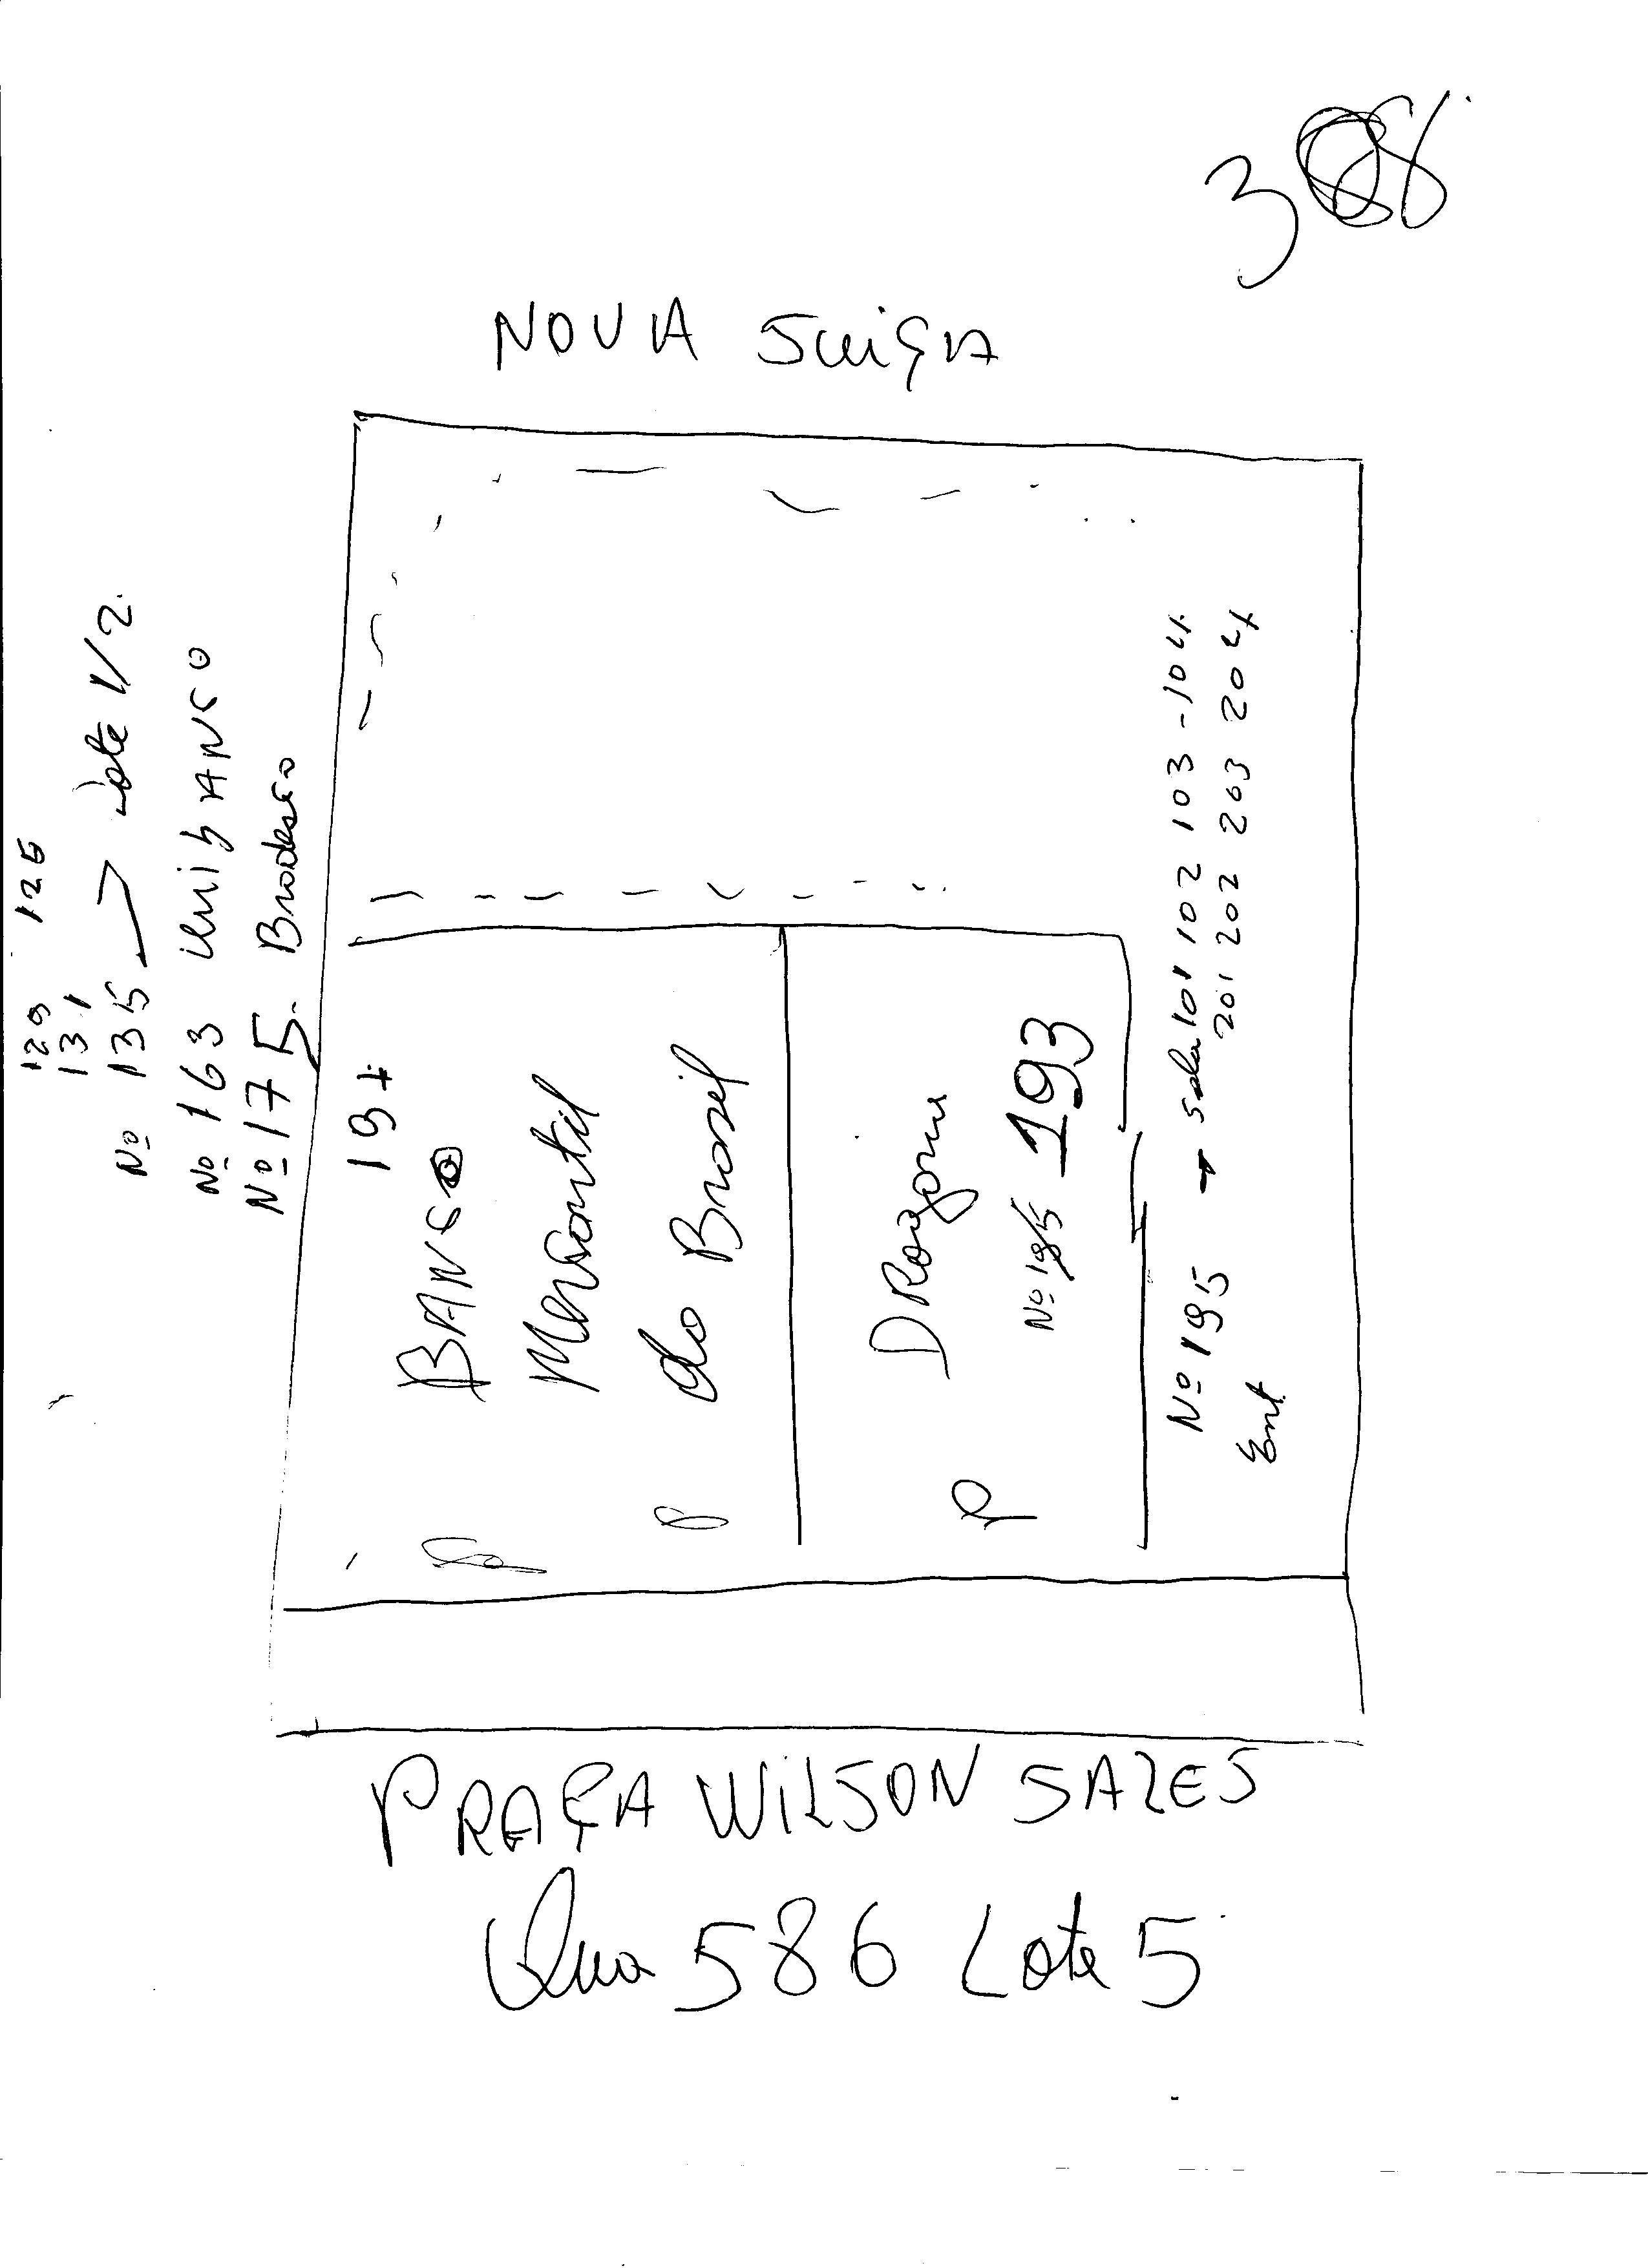 NOVA SUIÇA
129 125
131
Nº 135 Lote 1/2
Nº 163 UNIBANCO
Nº 175 Bradesco
BANCO
Mercantil
do Brasil
DRogaria
Nº 195 193
Nº 195 → sala 101 102 103 - 104
201 202 203 204
Ent
PRAÇA WILSON SALES
Qua 586 Lote 5